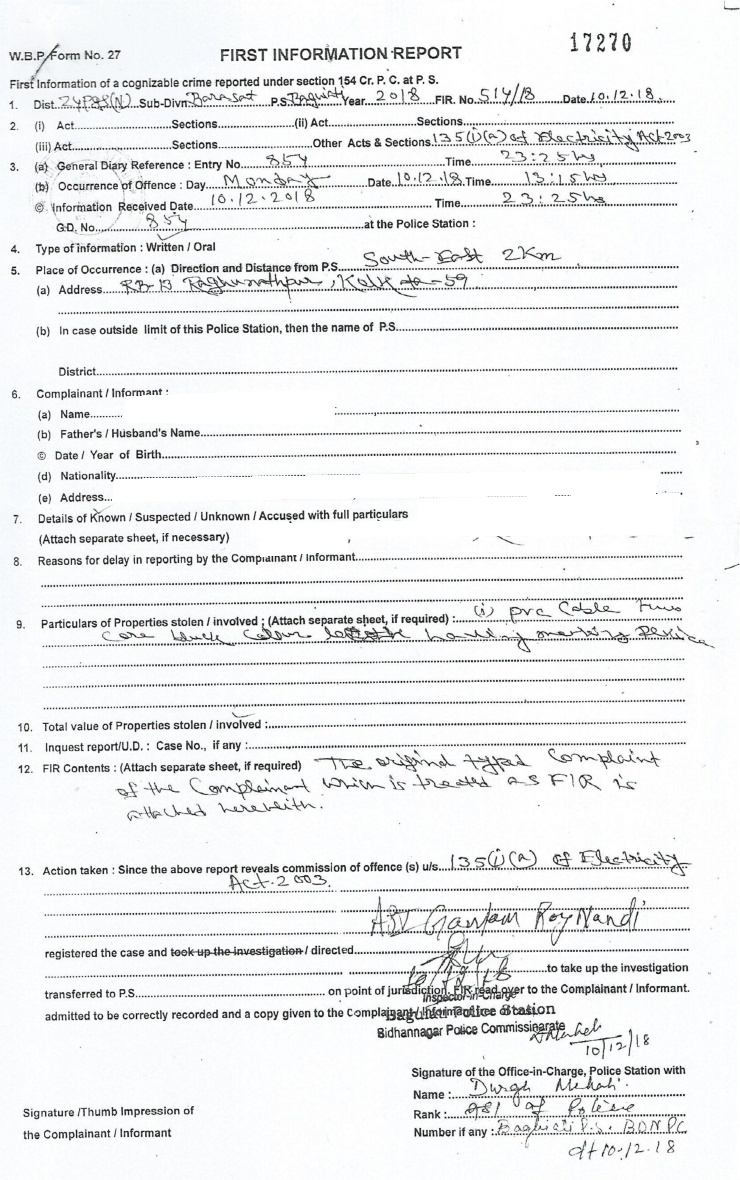 17270
W.B.P. Form No. 27
FIRST INFORMATION REPORT
First Information of a cognizable crime reported under section 154 Cr. P. C. at P. S.
1. Dist. 24 Pgs(N) Sub-Divn. Barasat P.S. Baguiati Year 2018 FIR. No. 514/18 Date 10.12.18.
2. (i) Act. Sections. (ii) Act. Sections.
(iii) Act. Sections. Other Acts & Sections. 135(i)(a) of Electricity Act-2003
3. (a) General Diary Reference : Entry No. 854 Time 23:25 hrs
(b) Occurrence of Offence : Day Monday Date 10.12.18 Time 13:15 hrs
© Information Received Date 10.12.2018 Time 23:25 hrs
G.D. No. 854 at the Police Station :
4. Type of information : Written / Oral
5. Place of Occurrence : (a) Direction and Distance from P.S. South-East 2Km
(a) Address Raghunathpur, Kolkata-59
(b) In case outside limit of this Police Station, then the name of P.S.
District
6. Complainant / Informant :
(a) Name
(b) Father's / Husband's Name
© Date / Year of Birth
(d) Nationality
(e) Address
7. Details of Known / Suspected / Unknown / Accused with full particulars
(Attach separate sheet, if necessary)
8. Reasons for delay in reporting by the Complainant / Informant
9. Particulars of Properties stolen / involved : (Attach separate sheet, if required) : (i) pvc Cable Two
Core black Colour having marking
10. Total value of Properties stolen / involved :
11. Inquest report/U.D. : Case No., if any :
12. FIR Contents : (Attach separate sheet, if required) The original typed Complaint
of the Complainant which is treated as FIR is
attached herewith.
13. Action taken : Since the above report reveals commission of offence (s) u/s. 135(i)(a) of Electricity
Act-2003.
ASI Roy Nandi
registered the case and took up the investigation / directed
10/12/18 to take up the investigation
transferred to P.S. on point of jurisdiction, FIR read over to the Complainant / Informant.
Inspector-in-Charge
admitted to be correctly recorded and a copy given to the Complainant / Informant free of cost
Baguiati Police Station
Bidhannagar Police Commissinarate
10/12/18
Signature of the Office-in-Charge, Police Station with
Name : Durga
Rank : ASI of Police
Signature /Thumb Impression of
the Complainant / Informant
Number if any : Baguiati P.S. BDNPC
dt 10.12.18